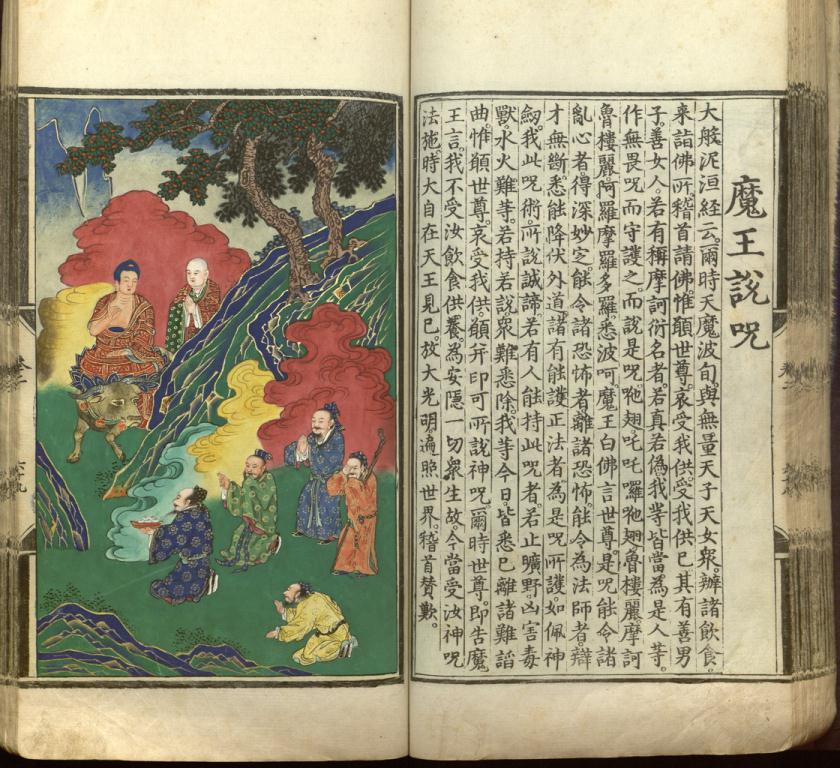 魔王說呪
大般泥洹經云。爾時天魔波旬。與無量天子天女眾。辦諸飲食。
來詣佛所。稽首請佛。惟願世尊。哀受我供。受我供已。其有善男
子。善女人。若有稱摩訶衍名者。若真若偽。我等皆當為是人等。
作無畏呪。而守護之。而說是呪。吔翅。吒吒囉吔翅。魯樓麗。摩訶
魯樓麗。阿羅。摩羅。多羅。悉波呵。魔王白佛言。世尊。是呪能令諸
亂心者。得深妙定。能令諸恐怖者。離諸恐怖。能令為法師者。辯
才無斷。悉能降伏外道。諸有能護正法者。為是呪所護。如佩神
劔。我此呪術。所說誠諦。若有人能持此呪者。若止曠野。凶害毒
獸。水火難等。若持若說。眾難悉除。我等今日。皆悉已離諸難諂
曲。惟願世尊。哀受我供。願開印可。所說神呪。爾時世尊。即告魔
王言。我不受汝飲食供養。為安隱一切眾生故。今當受汝神呪
法施。時大自在天王見已。放大光明。遍照世界。稽首贊歎。